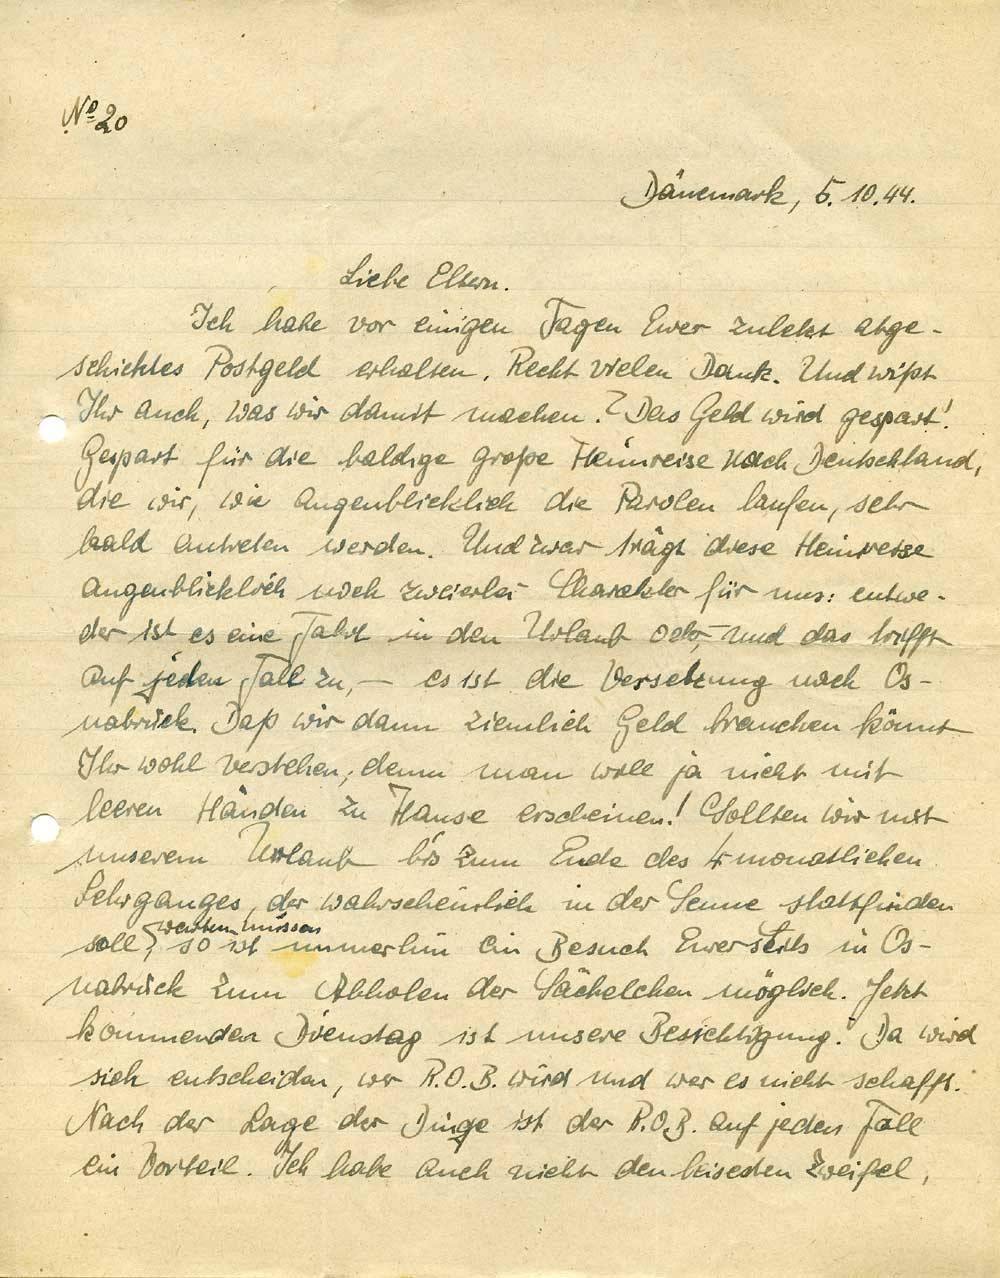 No 20
Dänemark, 5.10.44.
Liebe Eltern.
Ich habe vor einigen Tagen Euer zuletzt abge-
schicktes Postgeld erhalten. Recht vielen Dank. Und wißt
Ihr auch, was wir damit machen? Das Geld wird gespart!
Gespart für die baldige große Heimreise nach Deutschland,
die wir, wie augenblicklich die Parolen laufen, sehr
bald antreten werden. Und zwar trägt diese Heimreise
augenblicklich noch zweierlei Charakter für uns: entwe-
der ist es eine Fahrt in den Urlaub oder, - und das trifft
auf jeden Fall zu, — es ist die Versetzung nach Os-
nabrück. Daß wir dann ziemlich Geld brauchen könnt
Ihr wohl verstehen, denn man will ja nicht mit
leeren Händen zu Hause erscheinen! Sollten wir mit
unserem Urlaub bis zum Ende des 4 monatlichen
Lehrganges, der wahrscheinlich in der Senne stattfinden
soll, warten müssen, so ist immerhin ein Besuch Euerseits in Os-
nabrück zum Abholen der Sächelchen möglich. Jetzt
kommenden Dienstag ist unsere Besichtigung. Da wird
sich entscheiden, wer R.O.B. wird und wer es nicht schafft.
Nach der Lage der Dinge ist der R.O.B. auf jeden Fall
ein Vorteil. Ich habe auch nicht den leisesten Zweifel,